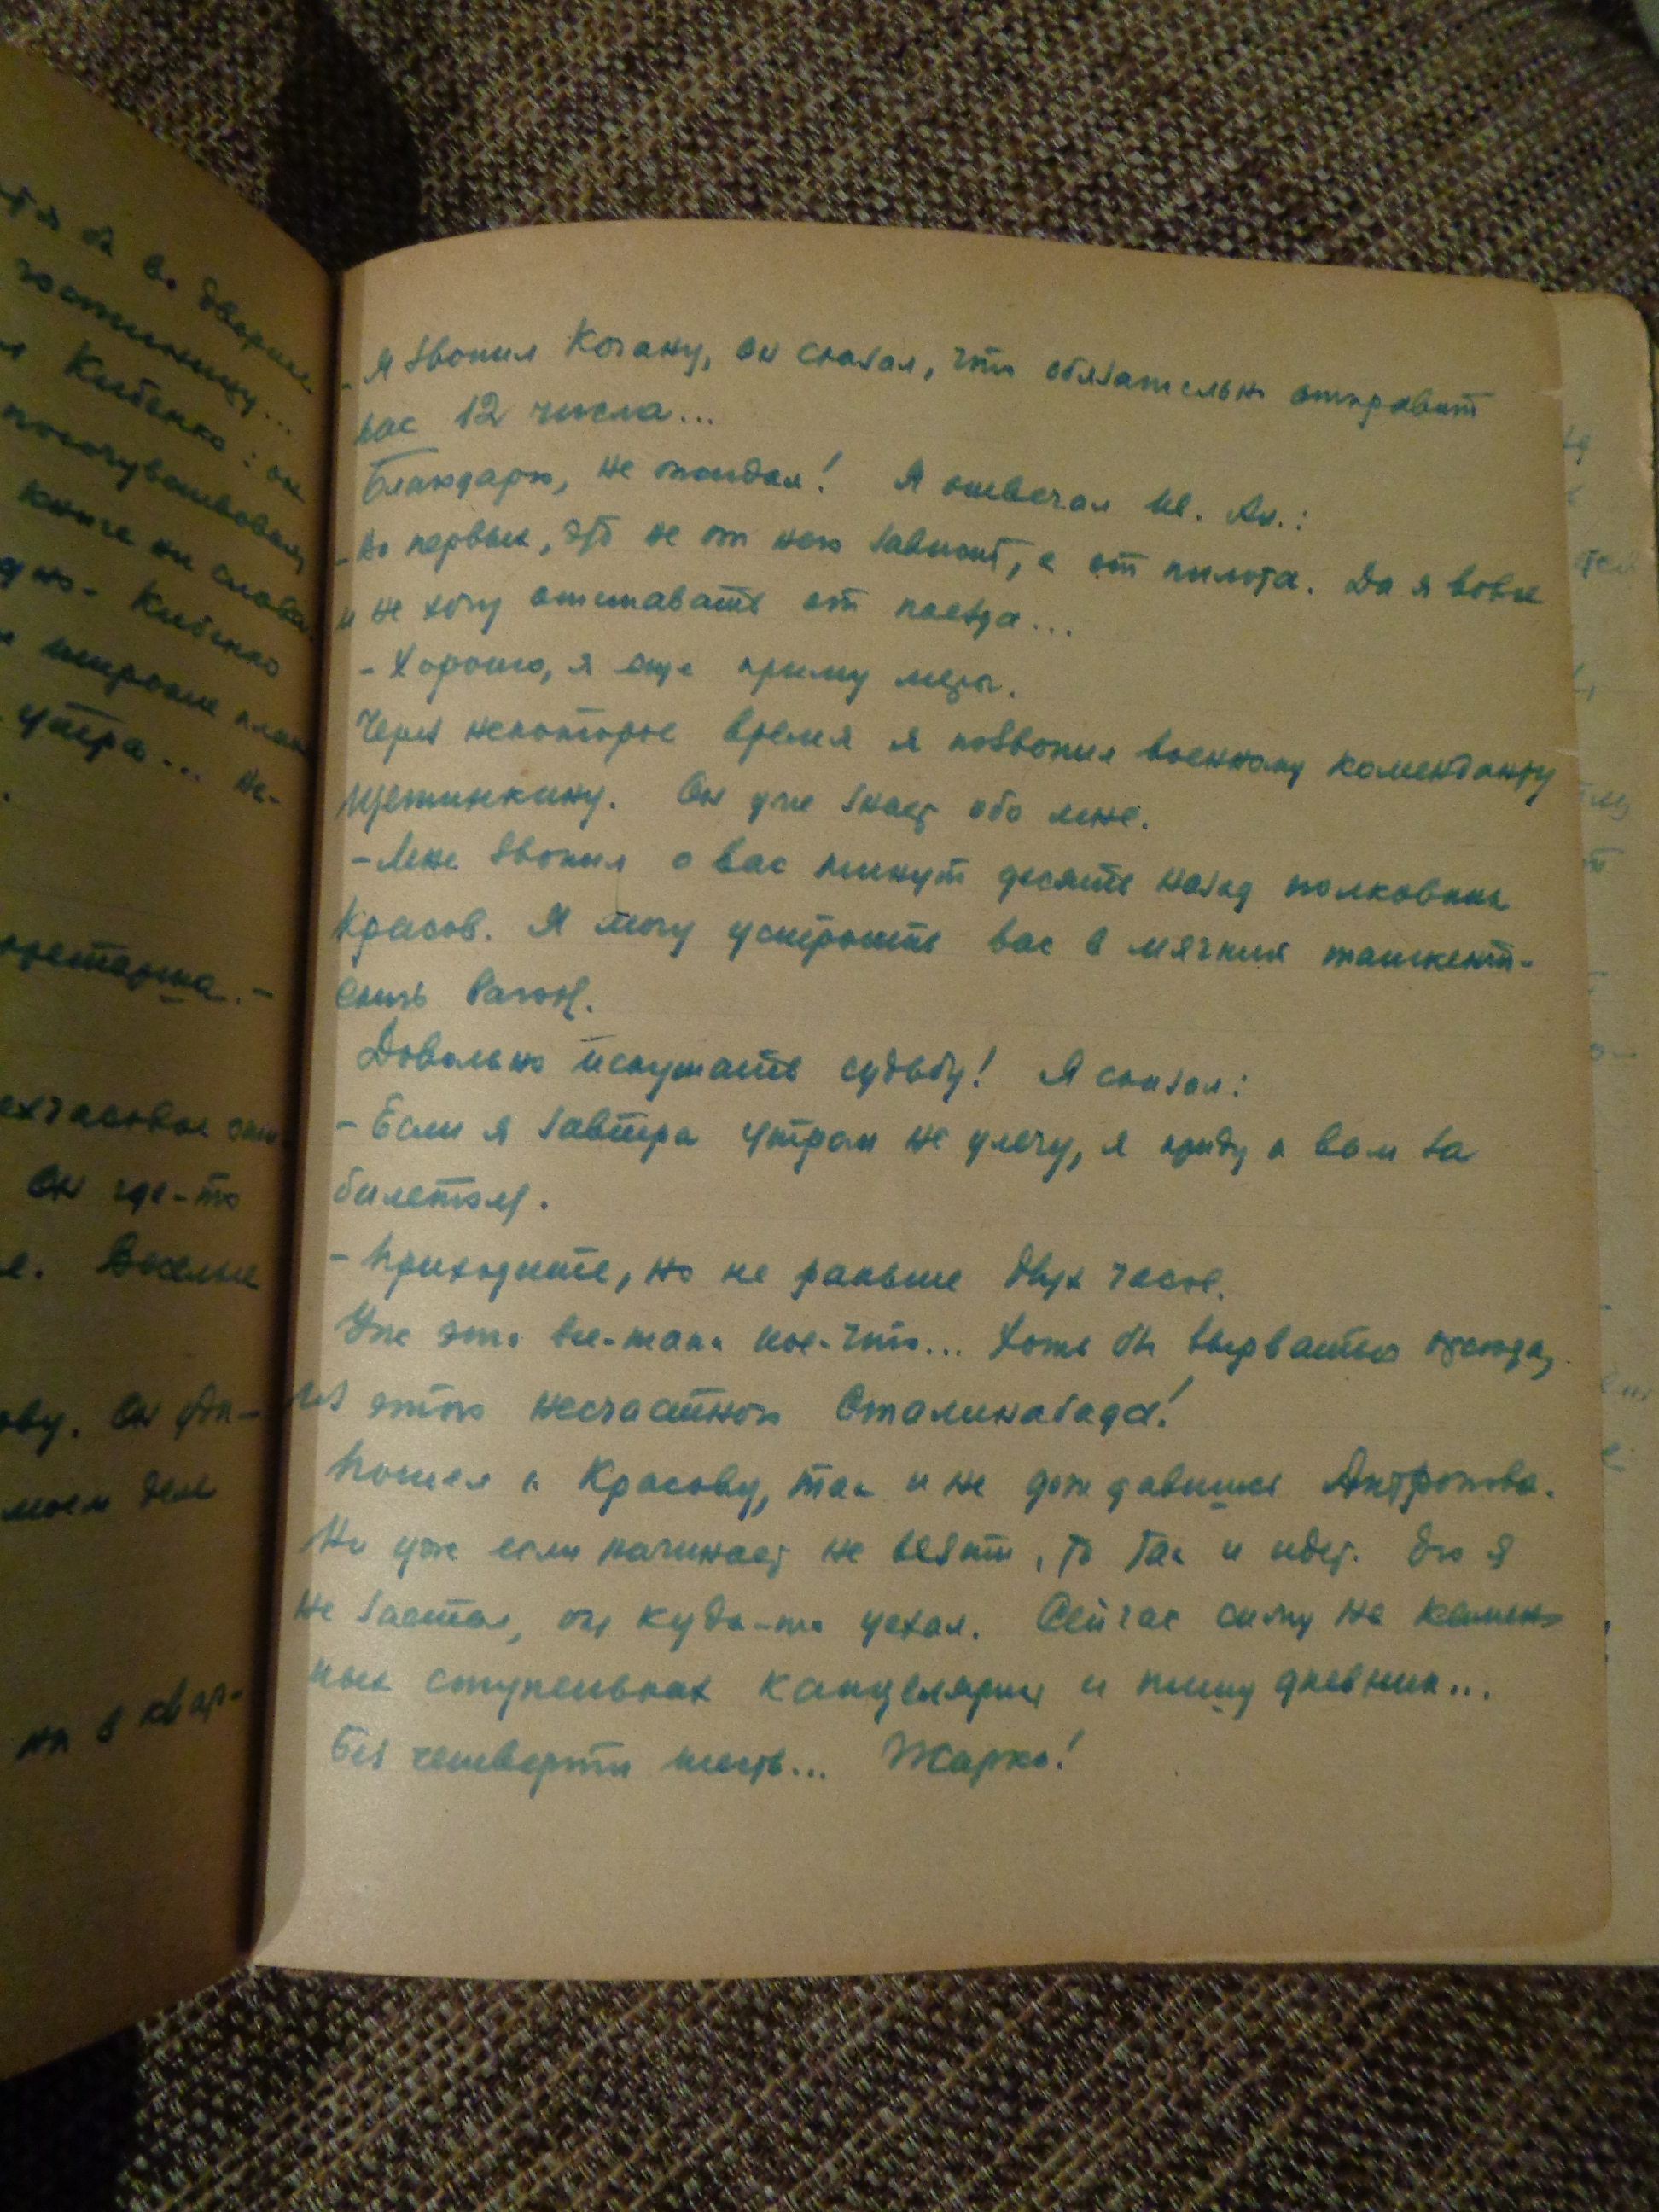 тя бы во дворик
гостиницу...
Кибенко: он
почувствовал,
книге ни слова.
Кибенко
широкие план
утра... Не-
-часовое
Он где-то
е. Веселые
ову. Он
моем деле
в квар-
- Я звонил Когану, он сказал, что обязательно отправит
вас 12 числа...
Благодарю, не ожидал! Я отвечал Ив. Ал.:
- Во первых, это не от него зависит, а от пилота. Да я вовсе
и не хочу отставать от поезда...
- Хорошо, я еще приму меры.
Через некоторое время я позвонил военному коменданту
Щетинкину. Он уже знает обо мне.
- Мне звонил о вас минут десять назад полковник
Красов. Я могу устроить вас в мягкий ташкент-
ский вагон.
Довольно искушать судьбу! Я сказал:
- Если я завтра утром не улечу, я приду к вам за
билетом.
- Приходите, но не раньше двух часов.
Уже это все-таки кое-что... Хоть бы вырваться отсюда,
из этого несчастного Сталинабада!
Пошел к Красову, так и не дождавшись Антропова.
Но уже если начинает не везти, то так и идет. Его я
не застал, он куда-то уехал. Сейчас сижу на камен-
ных ступеньках канцелярии и пишу дневник...
Без четверти шесть... Жарко!